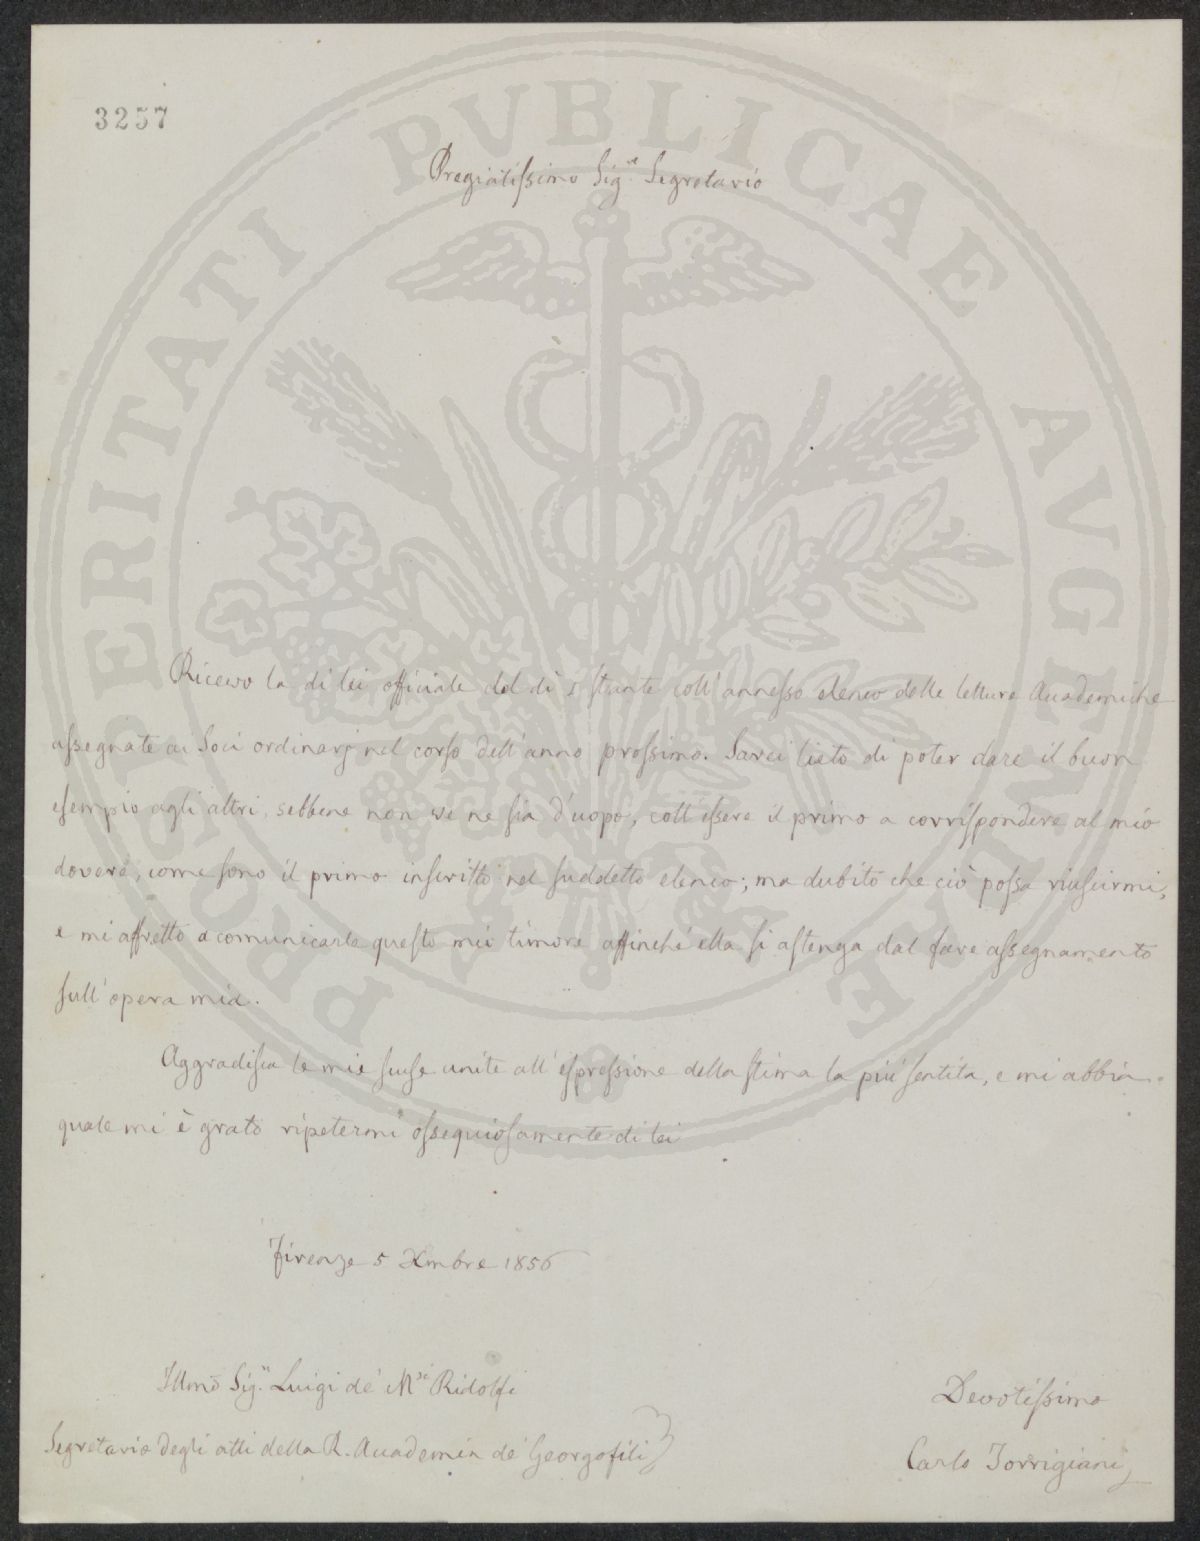 3257
PROSPERITATI PVBLICAE AVGENDAE
Pregiatissimo Sig.re Segretario
Ricevo la di lei officiale del di 1 stante coll'annesso elenco delle letture Accademiche
assegnate ai Soci ordinarj nel corso dell'anno prossimo. Sarei lieto di poter dare il buon
esempio agli altri, sebbene non ve ne sia d'uopo, coll'essere il primo a corrispondere al mio
dovere, come sono il primo inscritto nel suddetto elenco; ma dubito che ciò possa riuscirmi,
e mi affretto a comunicarle questo mio timore affinché ella si astenga dal fare assegnamento
sull'opera mia.
Aggradisca le mie scuse unite all'espressione della stima la più sentita, e mi abbia
quale mi è grato ripetermi ossequiosamente di lei
Firenze 5 Xmbre 1856
Illmo Sig.r Luigi de' M.si Ridolfi
Segretario degli atti della R. Accademia de' Georgofili
Devotissimo
Carlo Torrigiani